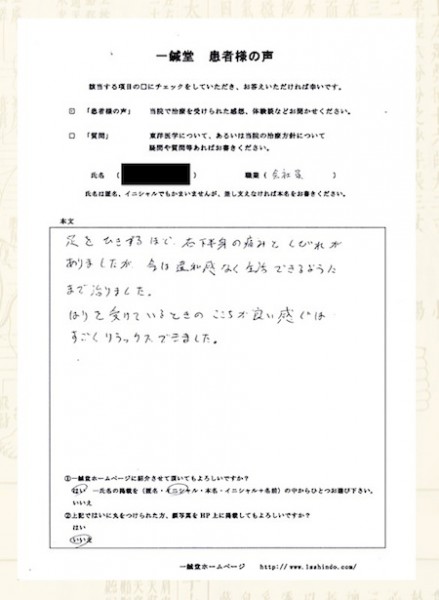 一鍼堂 患者様の声
該当する項目の口にチェックをしていただき、お答えいただければ幸いです。
☑ 「患者様の声」 当院で治療を受けられた感想、体験談などお聞かせください。
□ 「質問」 東洋医学について、あるいは当院の治療方針について
疑問や質問等あればお書きください。
氏名 ( ) 職業 ( 会社員 )
氏名は匿名、イニシャルでもかまいませんが、差し支えなければ本名をお書きください。
本文
足をひきずるほど、右下半身の痛みとしびれが
ありましたが、今は違和感なく生活できるようた
まで治りました。
はりを受けているときのここちが良い感じは
すごくリラックスできました。
①一鍼堂ホームページに紹介させて頂いてもよろしいですか?
はい ―氏名の掲載を(匿名・イニシャル・本名・イニシャル+名前)の中からひとつお選び下さい。
いいえ
②上記ではいに丸をつけられた方、顔写真を HP 上に掲載してもよろしいですか?
はい
いいえ
一鍼堂ホームページ http://www.1sshindo.com/